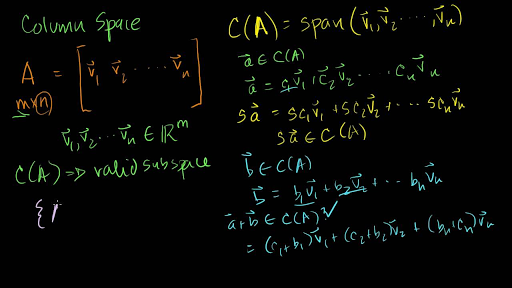 Column Space
A = [ v⃗₁ v⃗₂ ···· v⃗ₙ ]
m×n
v⃗₁, v⃗₂ ··· v⃗ₙ ∈ ℝᵐ
C(A) ⇒ valid subspace
{
C(A) = span(v⃗₁, v⃗₂ ····, v⃗ₙ)
a⃗ ∈ C(A)
a⃗ = c₁v⃗₁ + c₂v⃗₂ ···· cₙv⃗ₙ
sa⃗ = sc₁v⃗₁ + sc₂v⃗₂ + ··· scₙv⃗ₙ
sa⃗ ∈ C(A)
b⃗ ∈ C(A)
b⃗ = b₁v⃗₁ + b₂v⃗₂ + ··· bₙv⃗ₙ
a⃗+b⃗ ∈ C(A)? ✓
= (c₁+b₁)v⃗₁ + (c₂+b₂)v⃗₂ + (bₙ+cₙ)v⃗ₙ